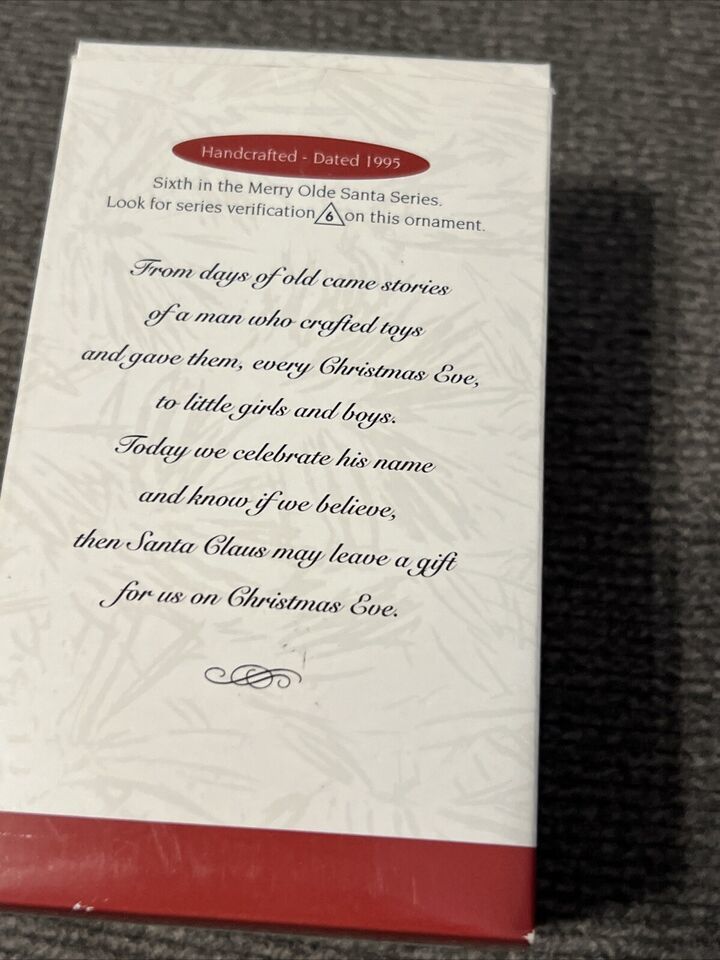 Handcrafted - Dated 1995
Sixth in the Merry Olde Santa Series.
Look for series verification 6 on this ornament.
From days of old came stories
of a man who crafted toys
and gave them, every Christmas Eve,
to little girls and boys.
Today we celebrate his name
and know if we believe,
then Santa Claus may leave a gift
for us on Christmas Eve.